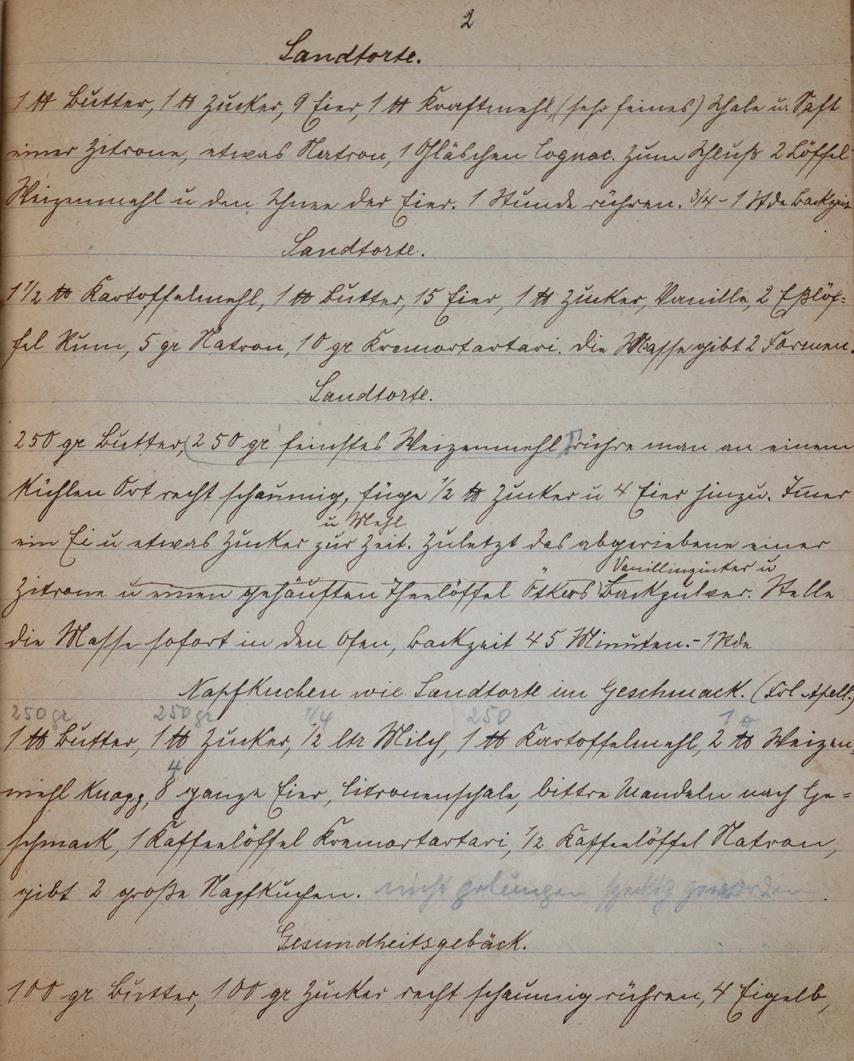 2
Sandtorte.
1 ℔ Butter, 1 ℔ Zucker, 9 Eier, 1 ℔ Kraftmehl, (sehr feines) Schale u. Saft
einer Zitrone, etwas Natron, 1 Gläschen Cognac. Zum Schluß 2 Löffel
Weizenmehl u den Schnee der Eier. 1 Stunde rühren. 3/4 - 1 Stde Backzeit
Sandtorte.
1 1/2 ℔ Kartoffelmehl, 1 ℔ Butter, 15 Eier, 1 ℔ Zucker, Vanille, 2 Eßlöf=
fel Rum, 5 gr Natron, 10 gr Kremortartari. Die Masse gibt 2 Formen.
Sandtorte.
250 gr Butter, (250 gr feinstes Weizenmehl) rühre man an einem
kühlen Ort recht schaumig, füge 1/2 ℔ Zucker u 4 Eier hinzu. Imer
u Mehl
ein Ei u etwas Zucker zur Zeit. Zuletzt das abgeriebene einer
Vanillinzucker u
Zitrone u einen gehäuften Theelöffel Ötkers Backpulver. Stelle
die Masse sofort in den Ofen, Backzeit 45 Minuten. - 1 Stde
Napfkuchen wie Sandtorte im Geschmack. (Frl.
250 gr 250 gr 1/4 250 1 ℔
1 ℔ Butter, 1 ℔ Zucker, 1/2 ltr Milch, 1 ℔ Kartoffelmehl, 2 ℔ Weizen=
4
mehl knapp, 8 ganze Eier, Citronenschale, bittre Mandeln nach Ge=
schmack, 1 Kaffeelöffel Kremortartari, 1/2 Kaffeelöffel Natron,
gibt 2 große Napfkuchen. nicht gelungen speckig geworden.
Gesundheitsgebäck.
100 gr Butter, 100 gr Zucker recht schaumig rühren, 4 Eigelb,